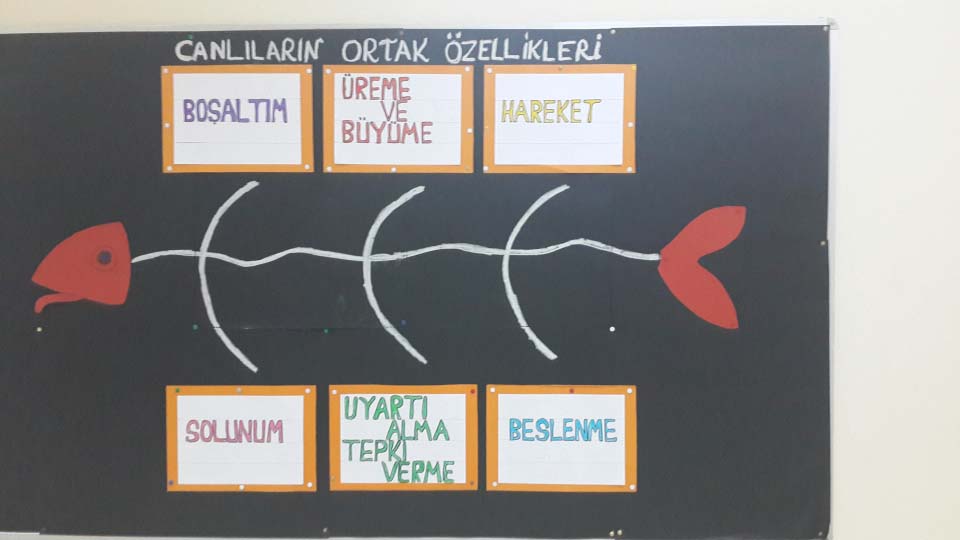 CANLILARIN ORTAK ÖZELLİKLERİ
BOŞALTIM
ÜREME
VE
BÜYÜME
HAREKET
SOLUNUM
UYARTI
ALMA
TEPKİ
VERME
BESLENME